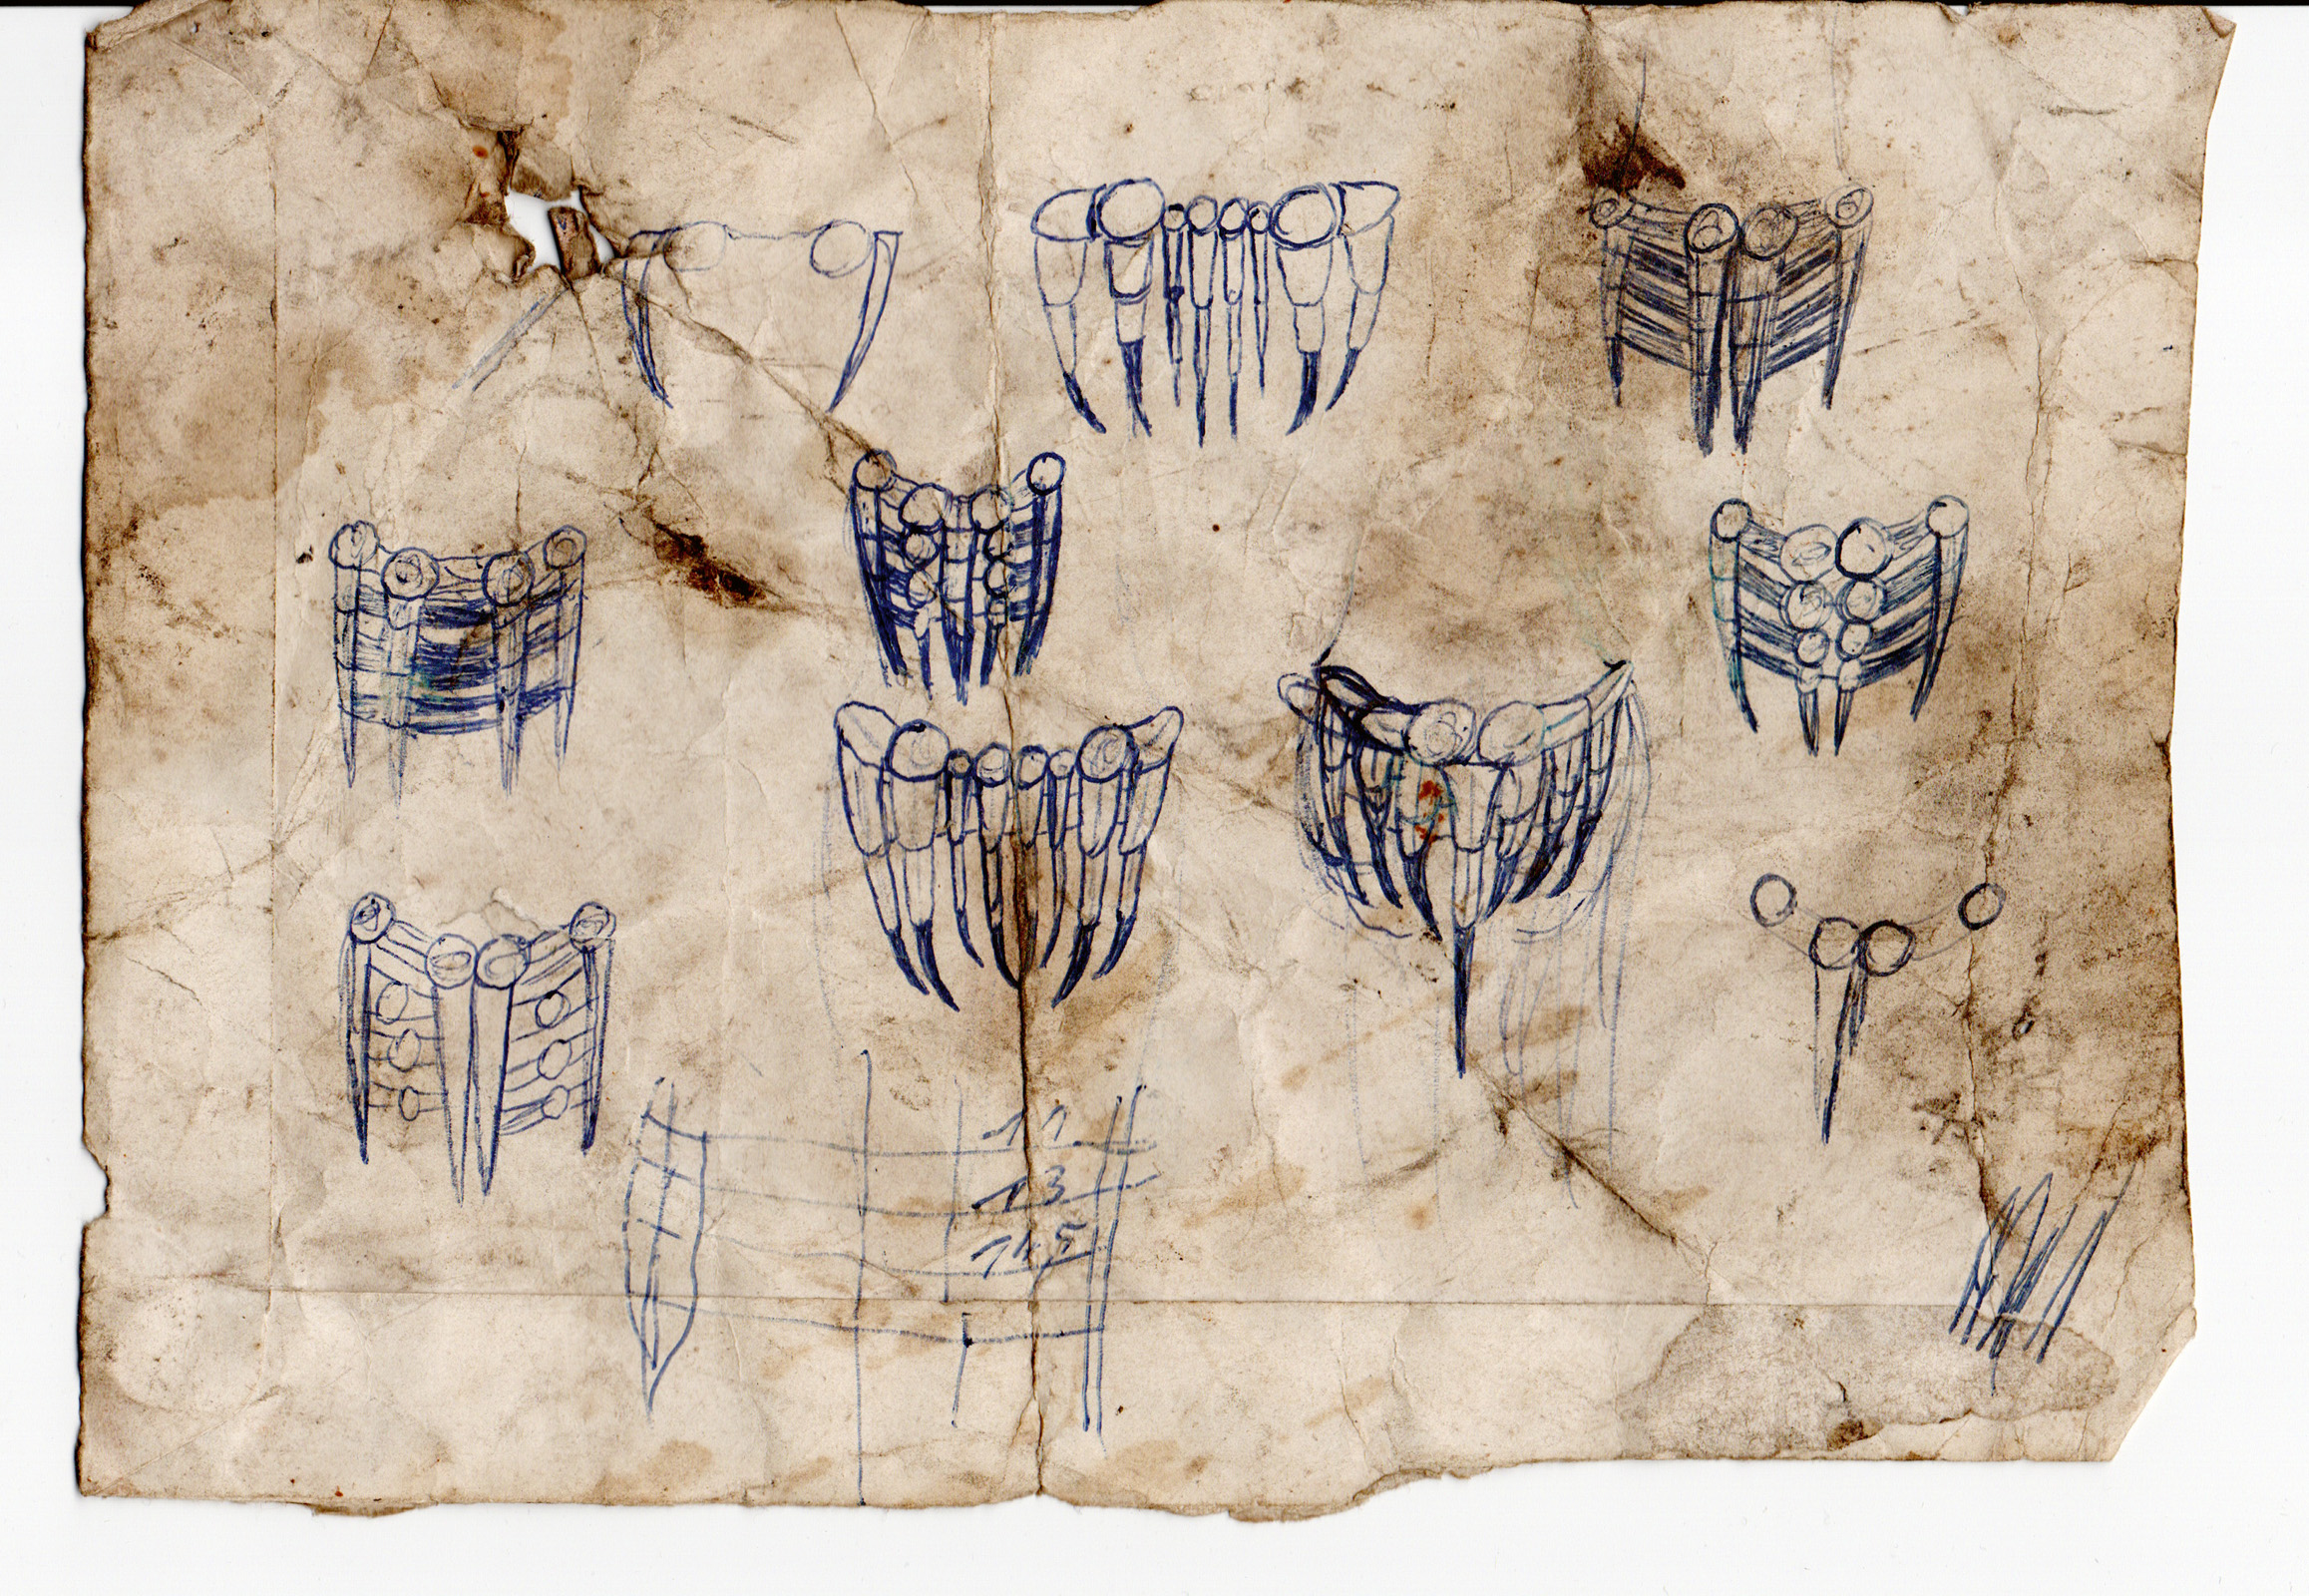 11
13
14,5